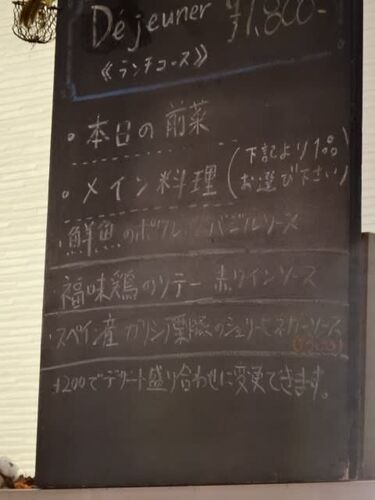 Déjeuner ¥1,800-
《ランチコース》
・本日の前菜
・メイン料理 (下記より1品お選び下さい)
・鮮魚のポワレ バジルソース
福味鶏のソテー 赤ワインソース
スペイン産 ガリシア栗豚のシェリービネガーソース
¥200でデザート盛り合わせに変更できます。